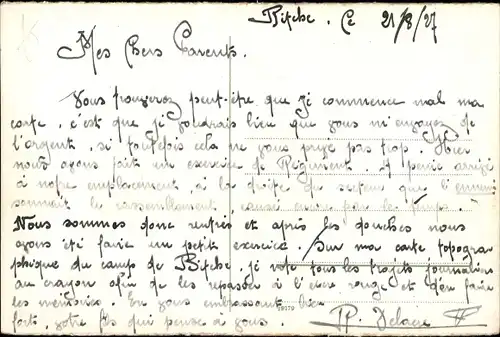 Bitche. Le 21/8/27
Mes Chers Parents.
Vous trouverez peut-être que je commence mal ma
carte, c'est que je voudrais bien que vous m'envoyez de
l'argent, si toutefois cela ne vous prive pas trop. Hier
nous avons fait un exercice de Régiment. A peine arrivé
à notre emplacement, à la droite du secteur que l'ennemi
sonnait le rassemblement, causé encore par le temps.
Nous sommes donc rentrés et après les douches nous
avons été faire un petit exercice. Sur ma carte topogra-
phique du camp de Bitche, je note tous les trajets journaliers
au crayon afin de les repasser à l'encre rouge et d'en faire
les mémoires. En vous embrassant bien
fort, votre fils qui pense à vous.